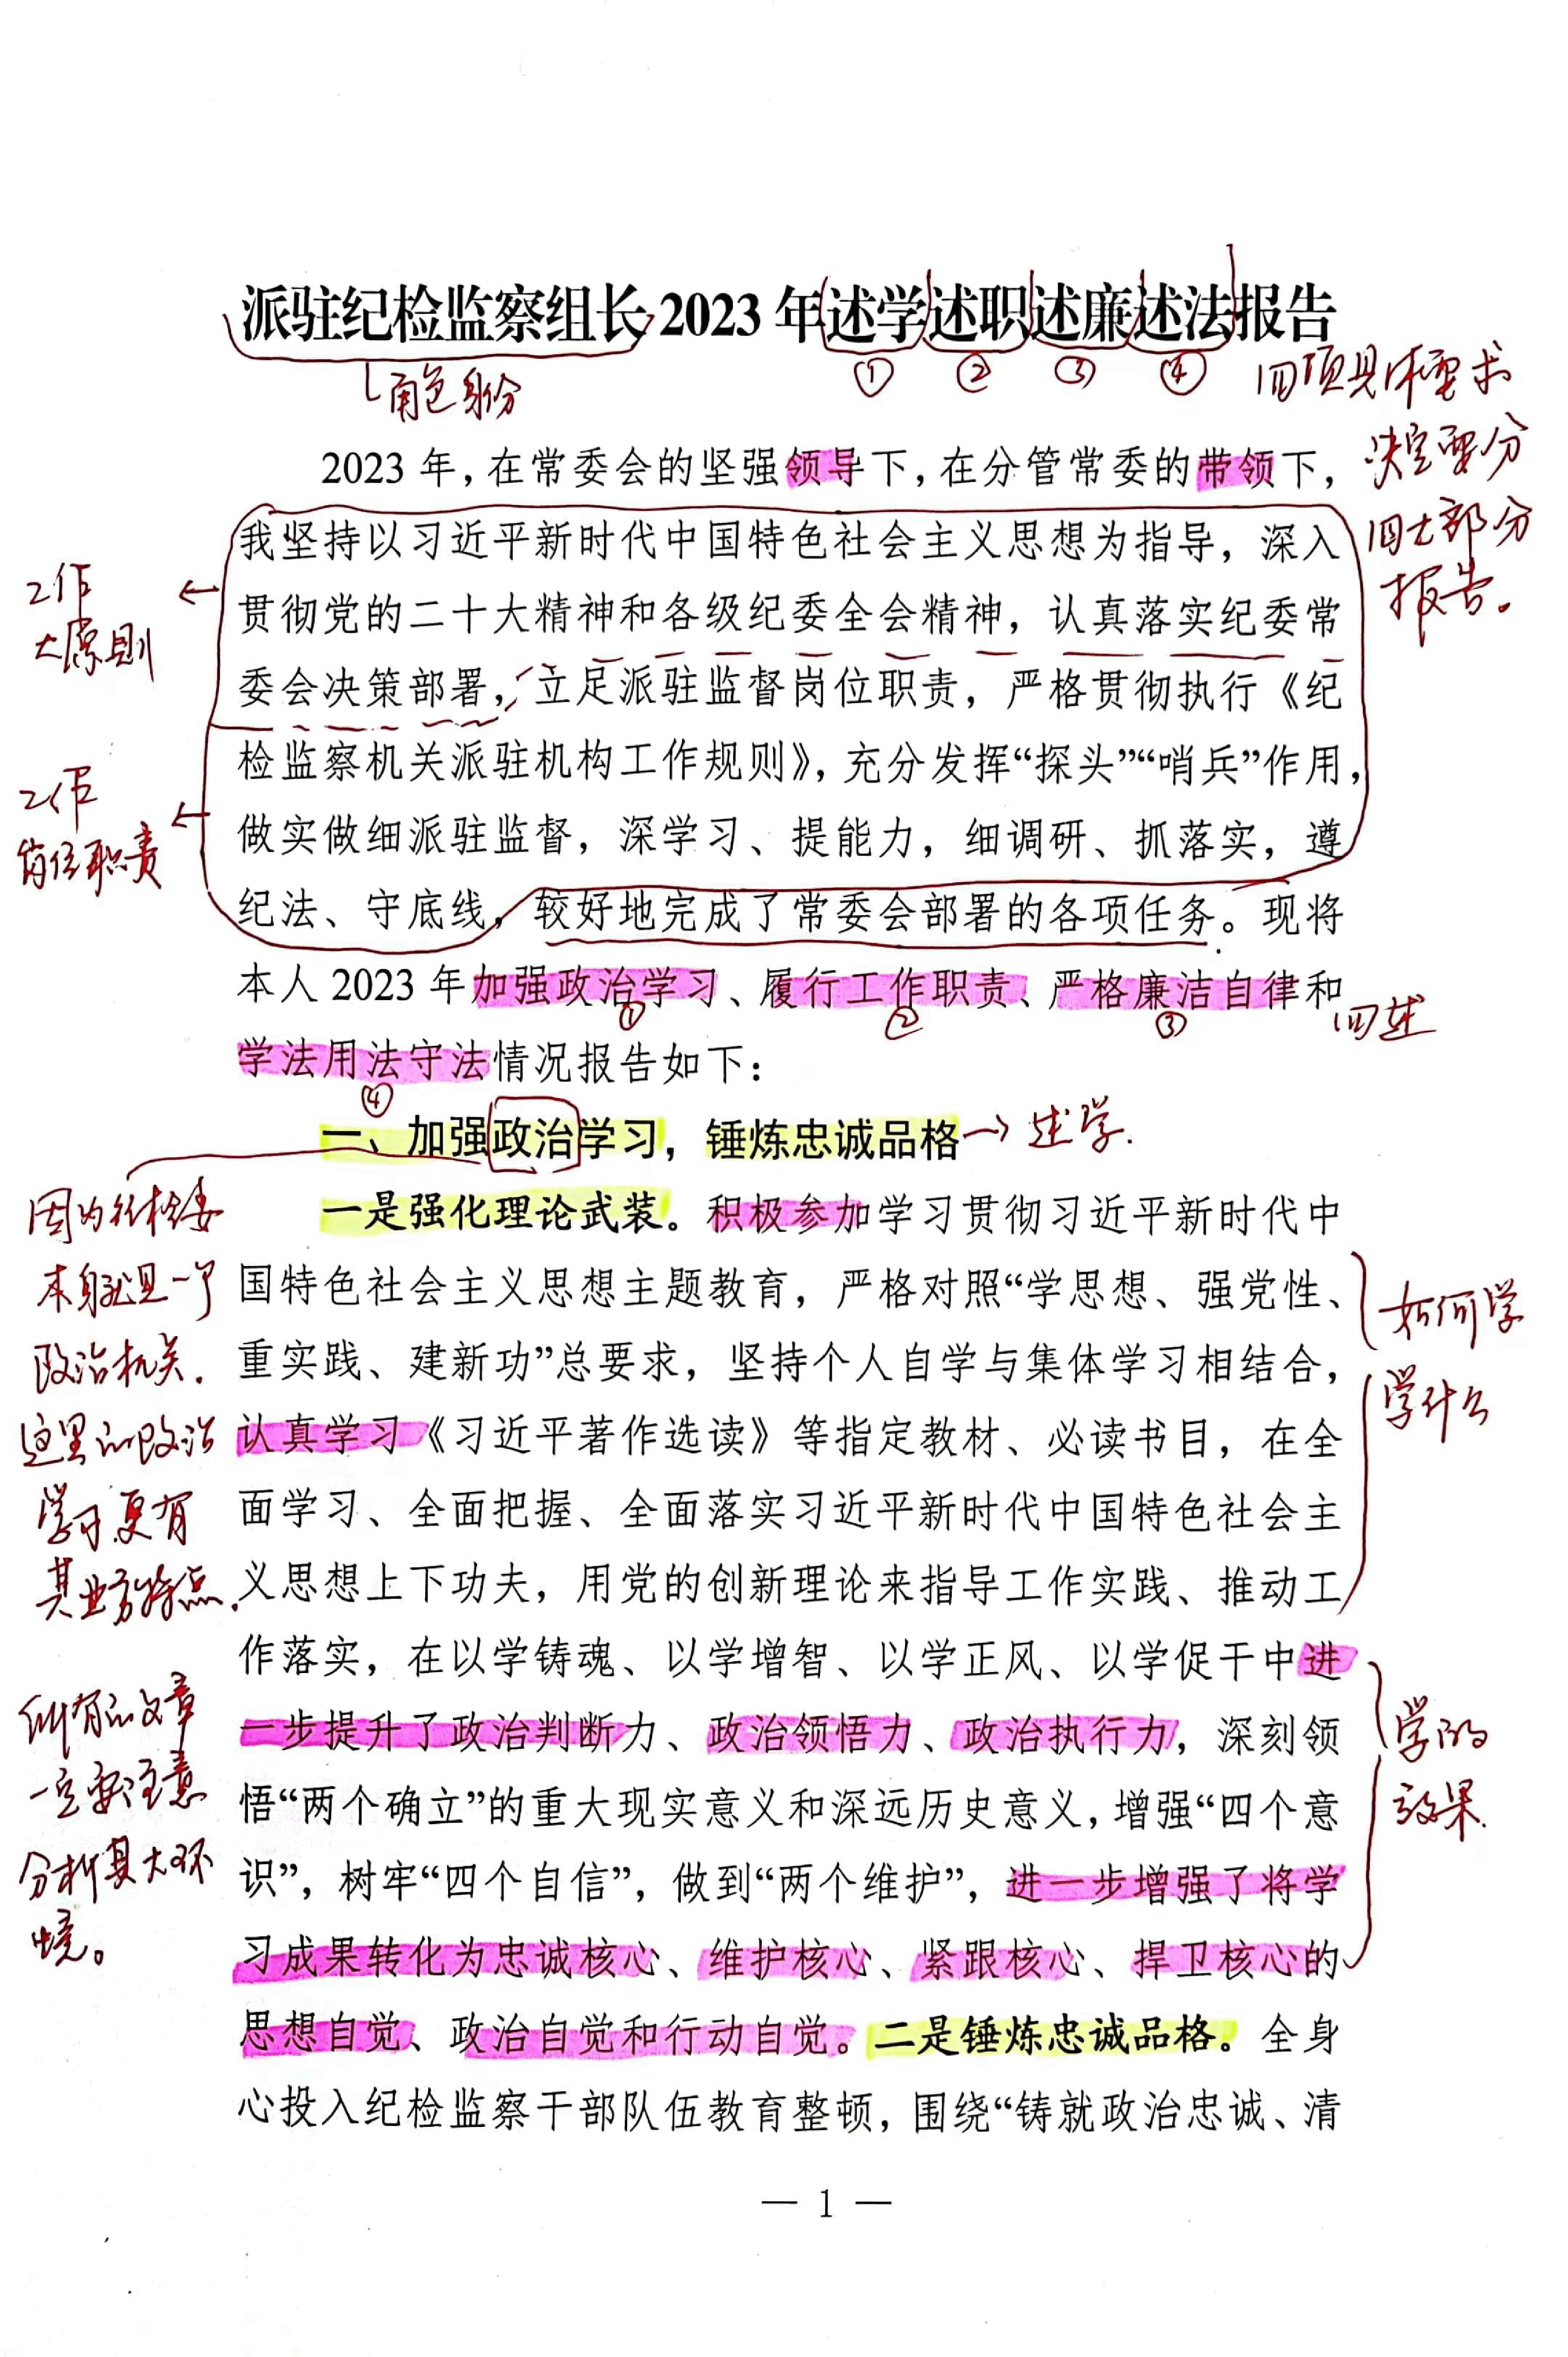 派驻纪检监察组长2023年述学述职述廉述法报告
角色身份
① ② ③ ④
四项具体要求
决定要分
四大部分
报告。
2023年,在常委会的坚强领导下,在分管常委的带领下,
我坚持以习近平新时代中国特色社会主义思想为指导，深入
贯彻党的二十大精神和各级纪委全会精神，认真落实纪委常
委会决策部署，立足派驻监督岗位职责，严格贯彻执行《纪
检监察机关派驻机构工作规则》，充分发挥“探头”“哨兵”作用，
做实做细派驻监督，深学习、提能力，细调研、抓落实，遵
纪法、守底线，较好地完成了常委会部署的各项任务。现将
本人2023年加强政治学习、履行工作职责、严格廉洁自律和
① ② ③
四述
学法用法守法情况报告如下：
④
工作
大原则
工作
岗位职责
一、加强政治学习，锤炼忠诚品格
→述学.
一是强化理论武装。积极参加学习贯彻习近平新时代中
国特色社会主义思想主题教育，严格对照“学思想、强党性、
重实践、建新功”总要求，坚持个人自学与集体学习相结合，
认真学习《习近平著作选读》等指定教材、必读书目，在全
面学习、全面把握、全面落实习近平新时代中国特色社会主
义思想上下功夫，用党的创新理论来指导工作实践、推动工
作落实，在以学铸魂、以学增智、以学正风、以学促干中进
一步提升了政治判断力、政治领悟力、政治执行力，深刻领
悟“两个确立”的重大现实意义和深远历史意义，增强“四个意
识”，树牢“四个自信”，做到“两个维护”，进一步增强了将学
习成果转化为忠诚核心、维护核心、紧跟核心、捍卫核心的
思想自觉、政治自觉和行动自觉。二是锤炼忠诚品格。全身
心投入纪检监察干部队伍教育整顿，围绕“铸就政治忠诚、清
因为纪检委
本身就是一个
政治机关.
这里的政治
学习更有
其业务特点.
所有的文章
一定要注意
分析其大环
境。
如何学
学什么
学的
效果.
— 1 —